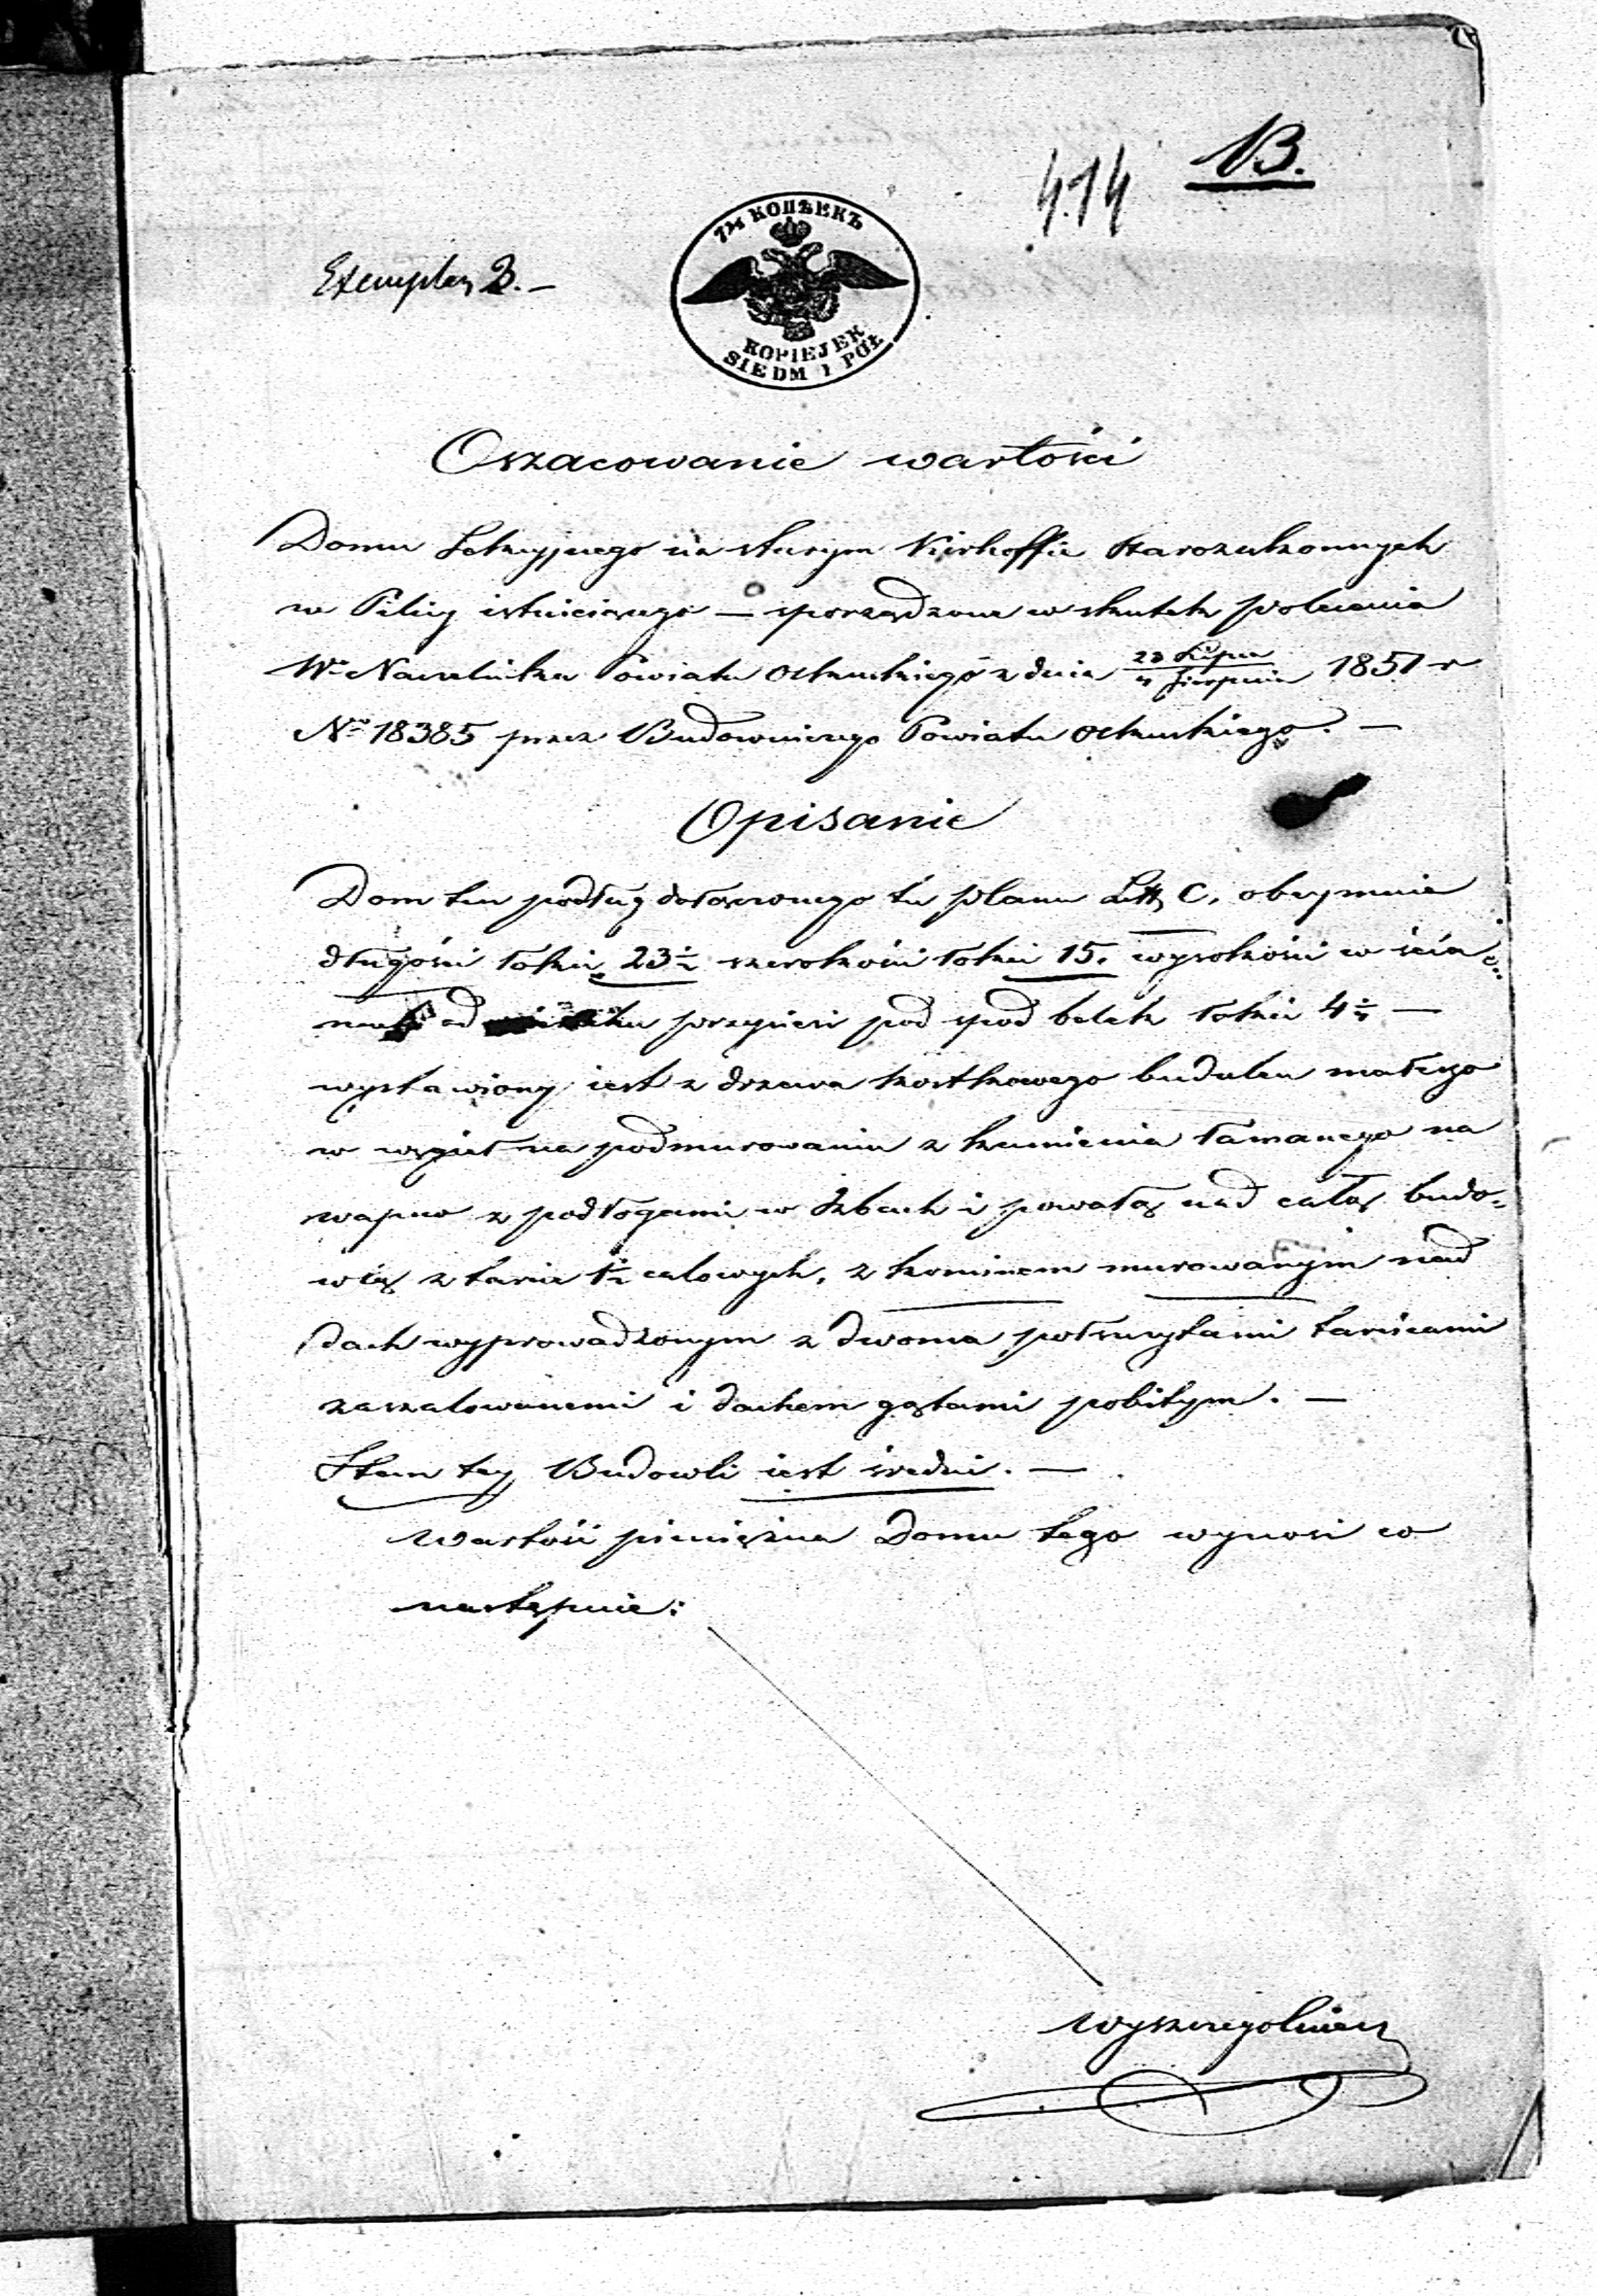 B.
414
7½ КОПѢЕКЪ
Exemplarz B. —
KOPIEJEK
SIEDM I PÓŁ
Oszacowanie wartości
Domu Sekcyjnego na starym Kirkoffie Starozakonnych
w Pilicy istnieiącego — sporządzone w skutek polecenia
Wo Naczelnika Powiatu Olkuskiego z dnia 23 Lipca / 4 Sierpnia 1851 r
No 18385 przez Budowniczego Powiatu Olkuskiego. —
Opisanie
Dom ten podług dołączonego tu planu Litt C, obeymuie
długości łokci 23½ szerokości łokci 15. wysokości w ścia=
nach od przyciesi pod spod belek łokci 4¼ —
wystawiony iest z drzewa kostkowego budulcu małego
w węgieł na podmurowaniu z kamienia łamanego na
wapno z podłogami w Izbach i powałą nad całą budo=
wlą z tarcic 1½ calowych, z kominem murowanym nad
dach wyprowadzonym z dwoma półszczytami tarcicami
zaszalowanemi i dachem gątami pobitym. —
Stan tey Budowli iest średni. —
Wartość pieniężna Domu tego wynosi co
następuie:
Wyszczegolnien